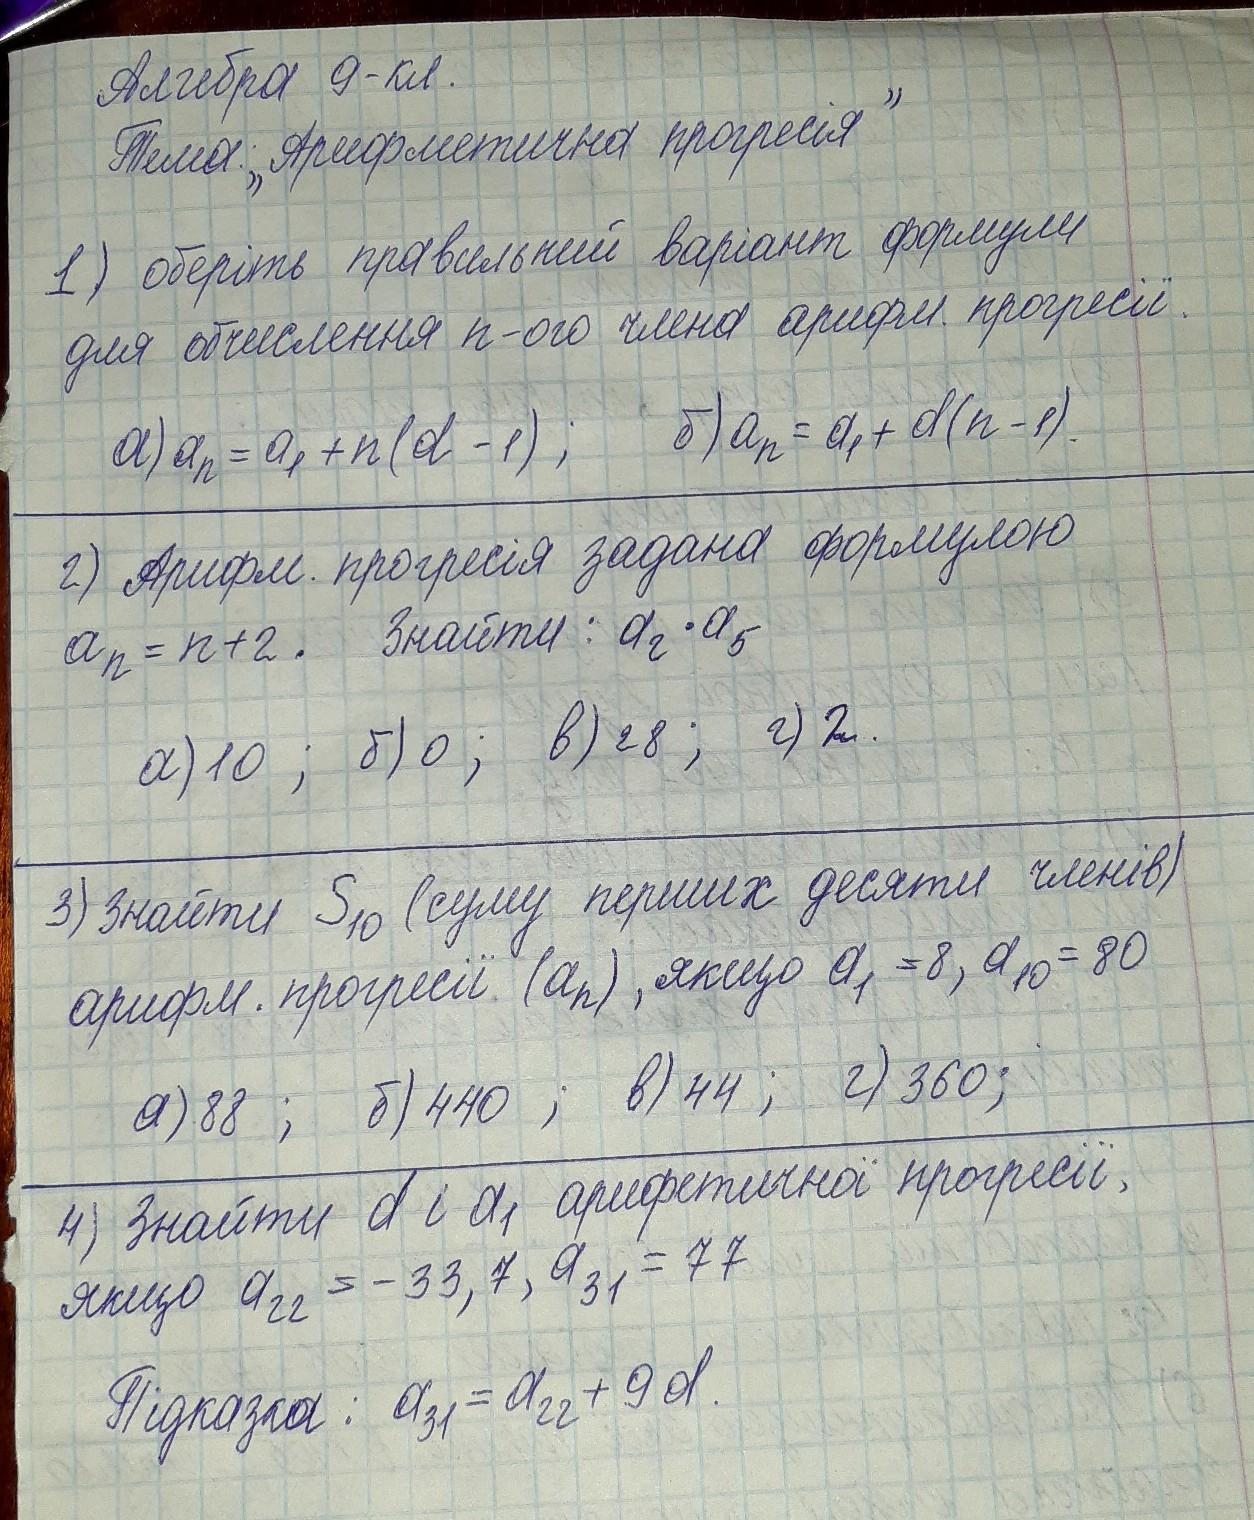 Алгебра 9-кл.
Тема: „Арифметична прогресія”
1) оберіть правильний варіант формули
для обчислення n-ого члена арифм. прогресії.
а) aₙ = a₁ + n(d - 1) ; б) aₙ = a₁ + d(n - 1).
2) Арифм. прогресія задана формулою
aₙ = n + 2. Знайти : a₂ · a₅
а) 10 ; б) 0 ; в) 28 ; г) 2.
3) Знайти S₁₀ (суму перших десяти членів)
арифм. прогресії (aₙ), якщо a₁ = 8, a₁₀ = 80
а) 88 ; б) 440 ; в) 44 ; г) 360;
4) Знайти d і a₁ арифетичної прогресії,
якщо a₂₂ = -33,7, a₃₁ = 77
Підказка : a₃₁ = a₂₂ + 9d.